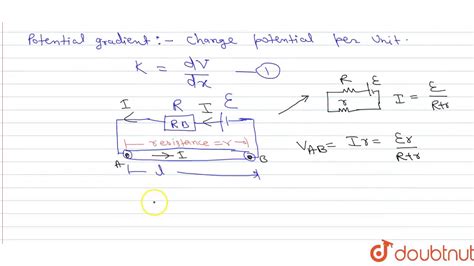 Potential gradient :- Change potential per unit.
K = dV/dx — ①
I R I ε
RB
resistance = r
A → I B
l
R ε
r
I = ε/R+r
V_AB = Ir = εr/R+r
doubtnut